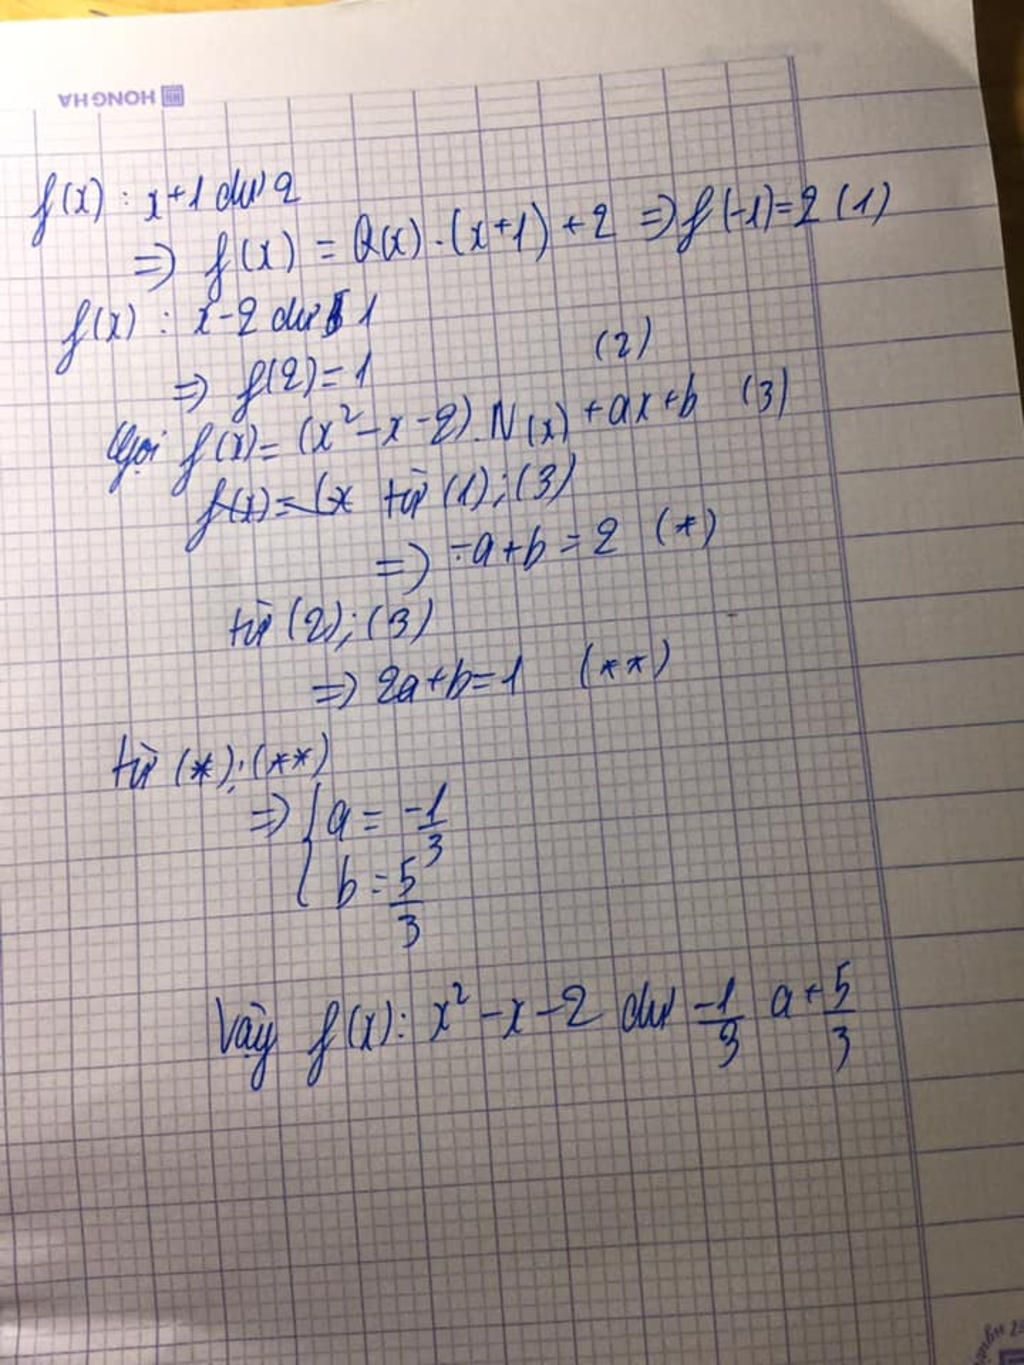 HONG HA
f(x) : x+1 dư 2
=> f(x) = Q(x).(x+1) +2 => f(-1)=2 (1)
f(x) : x-2 dư 1
=> f(2)=1 (2)
Gọi f(x)= (x²-x-2).N(x) +ax+b (3)
f(x)=(x từ (1);(3)
=> -a+b=2 (*)
từ (2);(3)
=> 2a+b=1 (**)
từ (*);(**)
=> { a = -1/3
b = 5/3
Vậy f(x): x²-x-2 dư -1/3 a+5/3